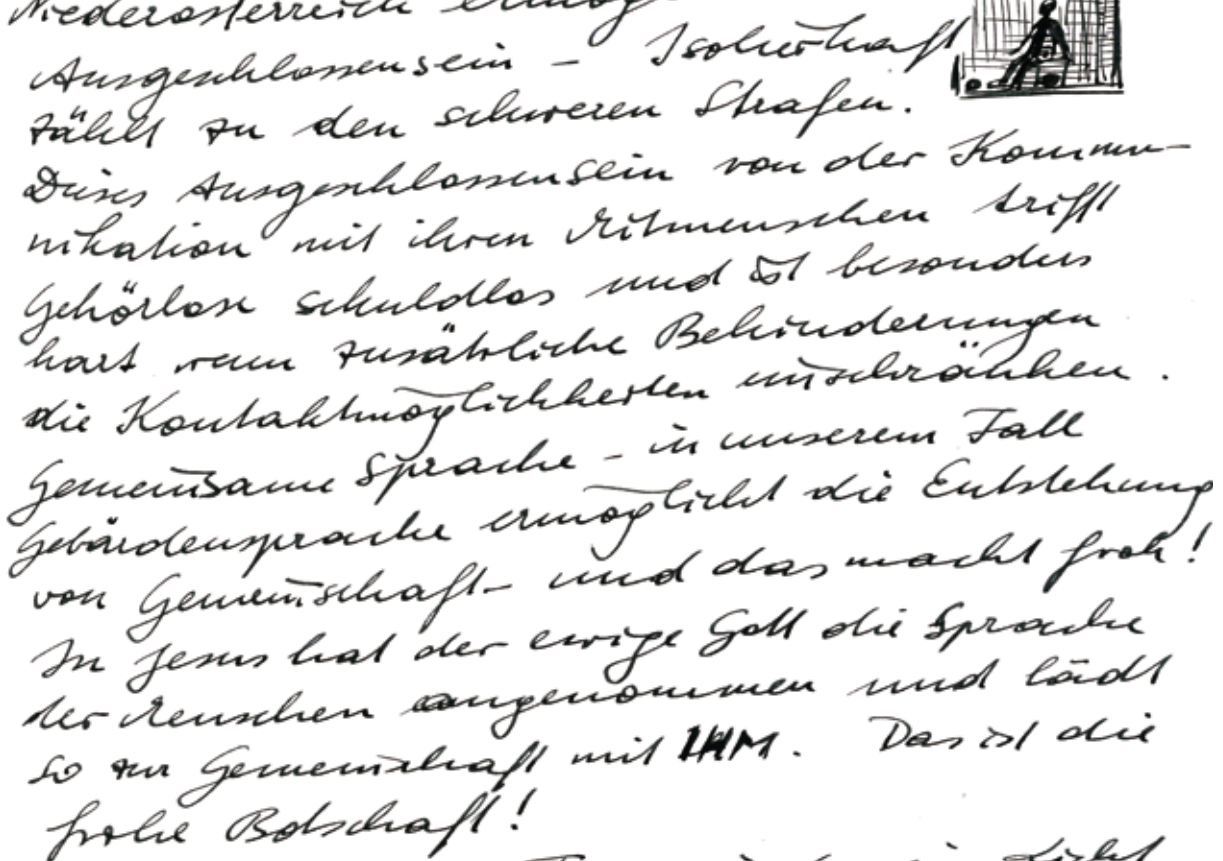 Niederösterreich
Ausgeschlossensein – Isolierhaft
zählt zu den schweren Strafen.
Dieses Ausgeschlossensein von der Kommu-
nikation mit ihren Mitmenschen trifft
Gehörlose schuldlos und ist besonders
hart wenn zusätzliche Behinderungen
die Kontaktmöglichkeiten einschränken.
Gemeinsame Sprache – in unserem Fall
Gebärdensprache ermöglicht die Entstehung
von Gemeinschaft – und das macht froh!
In Jesus hat der ewige Gott die Sprache
der Menschen angenommen und lädt
so zur Gemeinschaft mit IHM. Das ist die
frohe Botschaft!